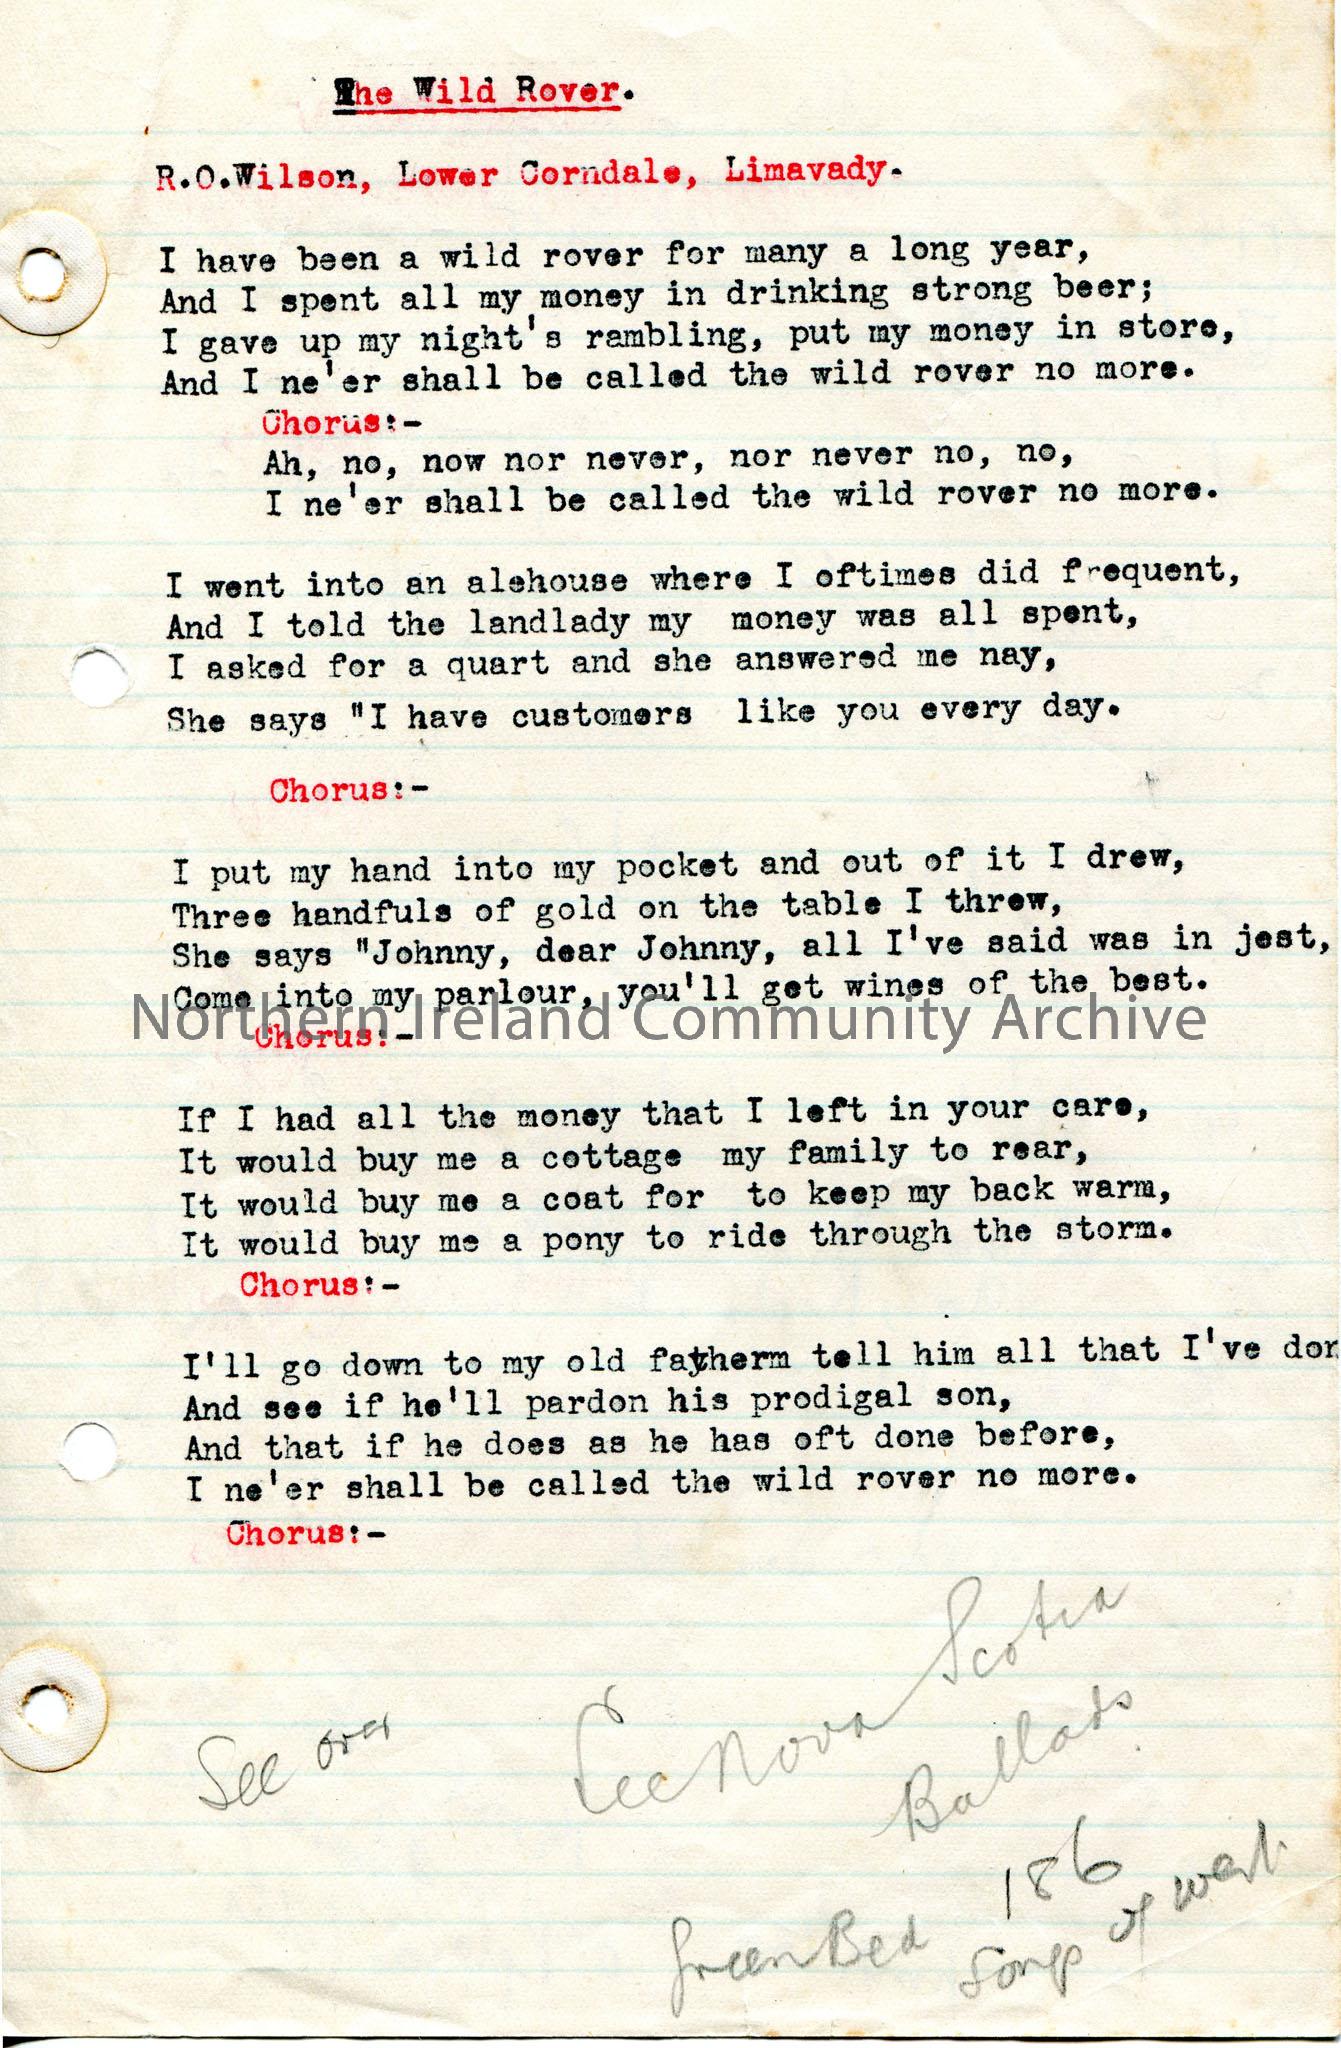 The Wild Rover.
R.O.Wilson, Lower Corndale, Limavady.
I have been a wild rover for many a long year,
And I spent all my money in drinking strong beer;
I gave up my night's rambling, put my money in store,
And I ne'er shall be called the wild rover no more.
Chorus:-
Ah, no, now nor never, nor never no, no,
I ne'er shall be called the wild rover no more.
I went into an alehouse where I oftimes did frequent,
And I told the landlady my money was all spent,
I asked for a quart and she answered me nay,
She says "I have customers like you every day.
Chorus:-
I put my hand into my pocket and out of it I drew,
Three handfuls of gold on the table I threw,
She says "Johnny, dear Johnny, all I've said was in jest,
Come into my parlour, you'll get wines of the best.
Northern Ireland Community Archive
Chorus:-
If I had all the money that I left in your care,
It would buy me a cottage my family to rear,
It would buy me a coat for to keep my back warm,
It would buy me a pony to ride through the storm.
Chorus:-
I'll go down to my old fatherm tell him all that I've don
And see if he'll pardon his prodigal son,
And that if he does as he has oft done before,
I ne'er shall be called the wild rover no more.
Chorus:-
See over
See Nova Scotia
Ballads
186
Green Bed
Songs of West